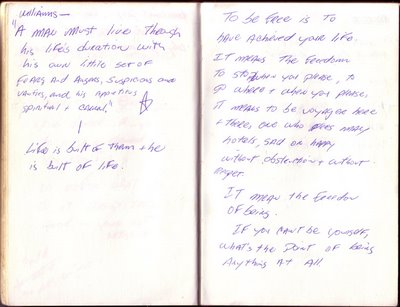 Williams—
"A man must live through
his life's duration with
his own little set of
fears and angers, suspicions and
vanities, and his appetites
spiritual + carnal."
Life is built of them + he
is built of life.
To be free is to
have achieved your life.
It means the freedom
to stop when you please, to
go where + when you please.
It means to be voyager here
+ there, one who flees many
hotels, sad or happy
without obstruction + without
regret.
It mean the freedom
of being.
If you can't be yourself,
what's the point of being
anything at all